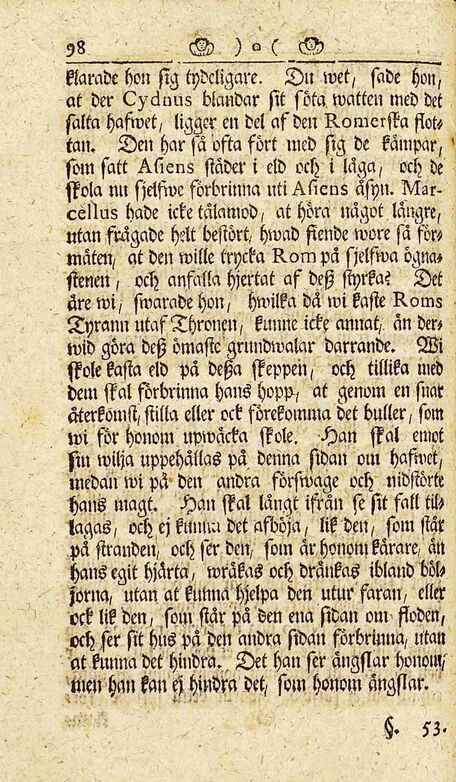 98 ) o (
klarade hon sig tydeligare. Du wet, sade hon,
at der Cydnus blandar sit söta watten med det
salta hafwet, ligger en del af den Romerska flot-
tan. Den har så ofta fört med sig de kämpar,
som satt Asiens städer i eld och i låga, och de
skola nu sjelfwe förbrinna uti Asiens åsyn. Mar-
cellus hade icke tålamod, at höra något längre,
utan frågade helt bestört, hwad fiende wore så för-
mäten, at den wille trycka Rom på sjelfwa ögna-
stenen, och anfalla hjertat af deß styrka? Det
äre wi, swarade hon, hwilka då wi kaste Roms
Tyrann utaf Thronen, kunne icke annat, än der-
wid göra deß ömaste grundwalar darrande. Wi
skole kasta eld på deßa skeppen, och tillika med
dem skal förbrinna hans hopp, at genom en snar
återkomst, stilla eller ock förekomma det buller, som
wi för honom upwäcka skole. Han skal emot
sin wilja uppehållas på denna sidan om hafwet,
medan wi på den andra förswage och nidstörte
hans magt. Han skal långt ifrån se sit fall til-
lagas, och ej kunna det afböja, lik den, som står
på stranden, och ser den, som är honom kärare, än
hans egit hjärta, wräkas och dränkas ibland böl-
jorna, utan at kunna hjelpa den utur faran, eller
ock lik den, som står på den ena sidan om floden,
och ser sit hus på den andra sidan förbrinna, utan
at kunna det hindra. Det han ser ängslar honom,
men han kan ej hindra det, som honom ängslar.
§. 53.